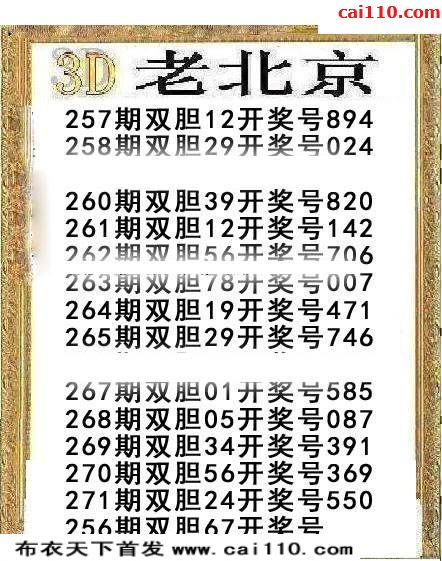 cai110.com
3D 老北京
257期双胆12开奖号894
258期双胆29开奖号024
260期双胆39开奖号820
261期双胆12开奖号142
262期双胆56开奖号706
263期双胆78开奖号007
264期双胆19开奖号471
265期双胆29开奖号746
267期双胆01开奖号585
268期双胆05开奖号087
269期双胆34开奖号391
270期双胆56开奖号369
271期双胆24开奖号550
256期双胆67开奖号
布衣天下首发 www.cai110.com